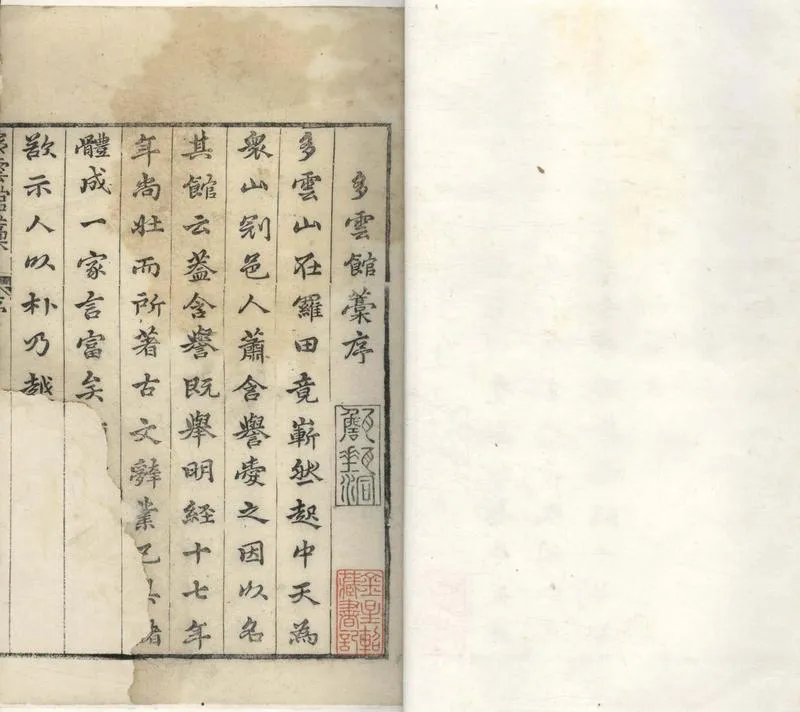 多雲館藁序
甔甀洞
金星軺藏書記
多雲山在羅田竟嶄然起中天為
衆山邑人蕭含譽愛之因以名
其館云蓋含譽既舉明經十七年
年尚壯而所著古文辭業已
體成一家言富矣
欲示人以朴乃越